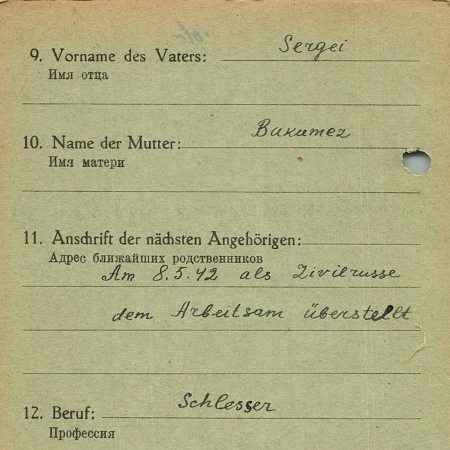 9. Vorname des Vaters: Sergei
Имя отца
10. Name der Mutter: Bakumez
Имя матери
11. Anschrift der nächsten Angehörigen:
Адрес ближайших родственников
Am 8.5.42 als Zivilrusse
dem Arbeitsam überstellt
12. Beruf: Schlesser
Профессия